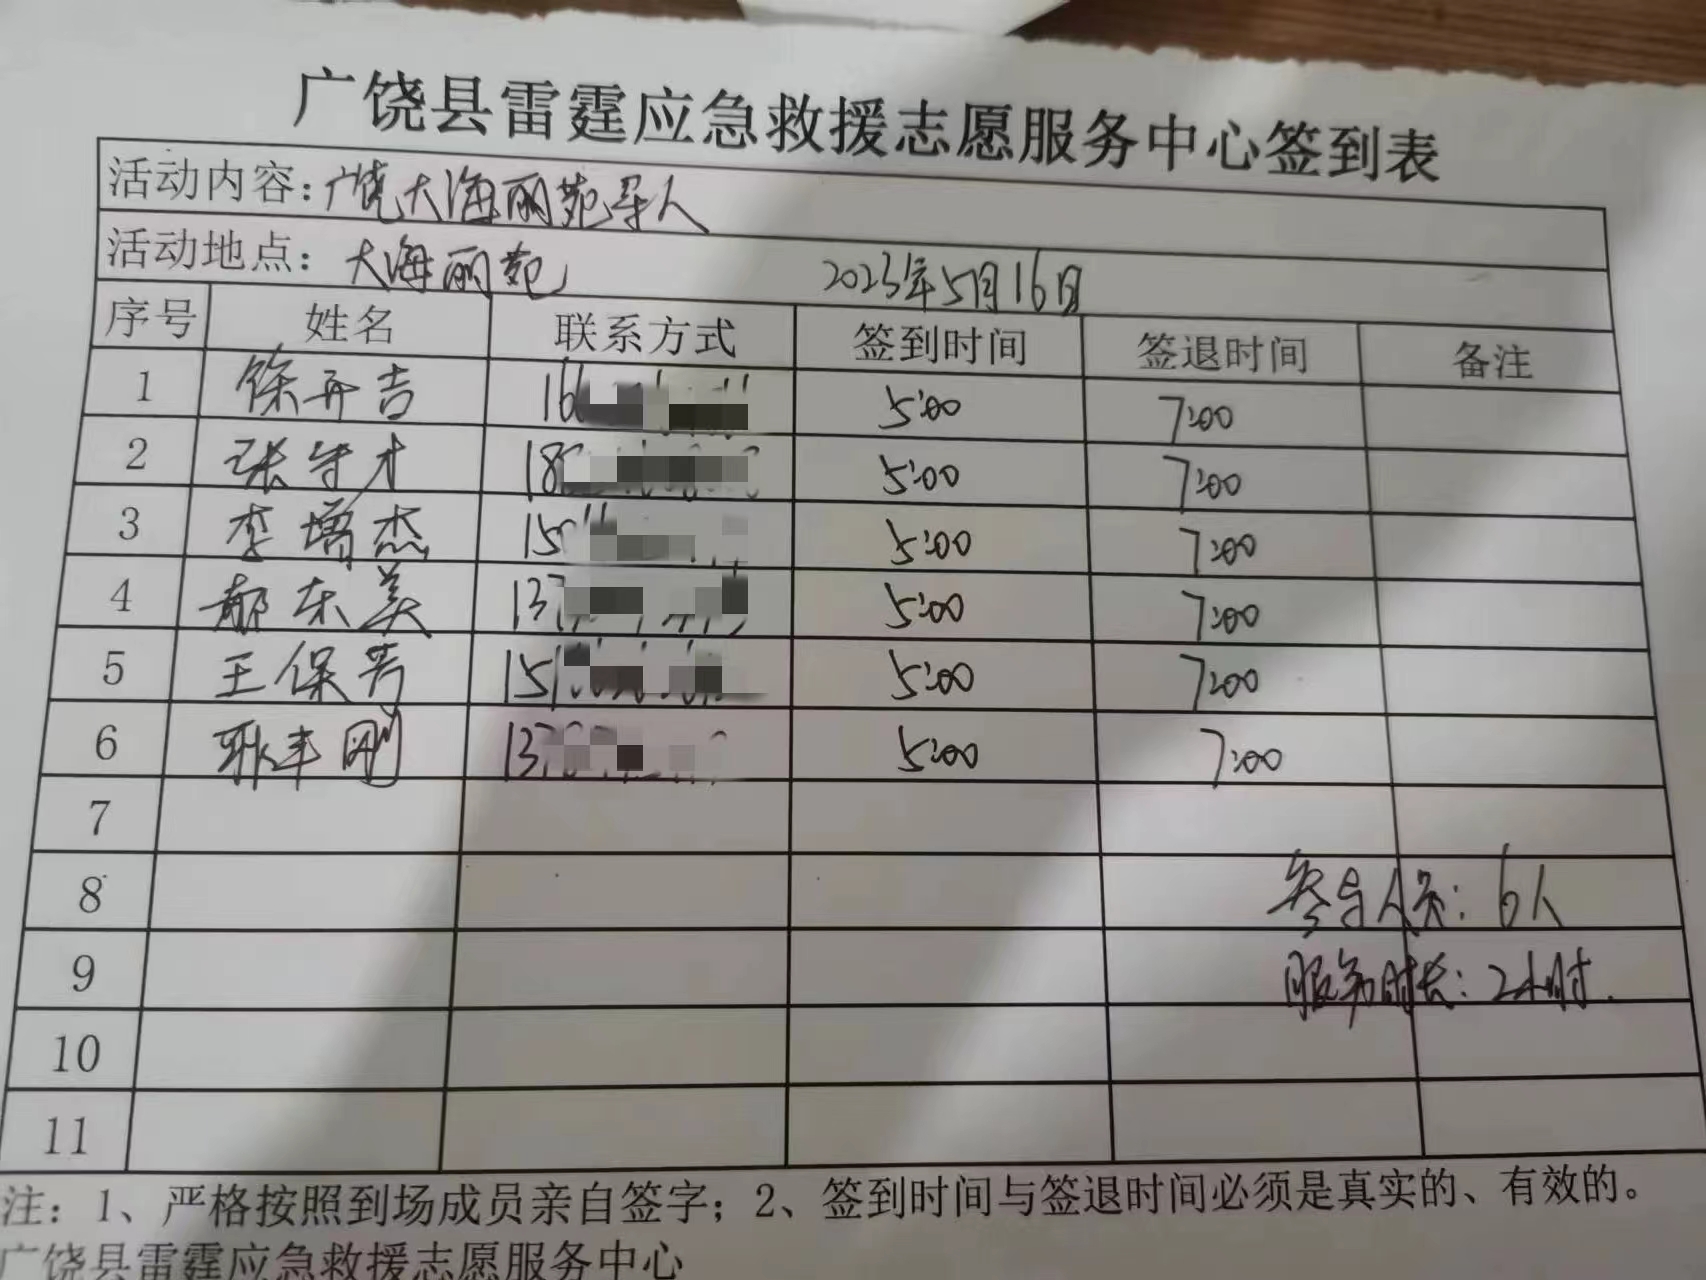 广饶县雷霆应急救援志愿服务中心签到表
活动内容：广饶大海丽苑寻人
活动地点：大海丽苑 2023年5月16日
序号 姓名 联系方式 签到时间 签退时间 备注
1 徐开吉 16 5:00 7:00
2 张守才 18 5:00 7:00
3 李增杰 15 5:00 7:00
4 郁东美 137 5:00 7:00
5 王保芳 151 5:00 7:00
6 耿丰刚 137 5:00 7:00
7
8 签到人员：6人
9 服务时长：2小时.
10
11
注：1、严格按照到场成员亲自签字；2、签到时间与签退时间必须是真实的、有效的。
广饶县雷霆应急救援志愿服务中心